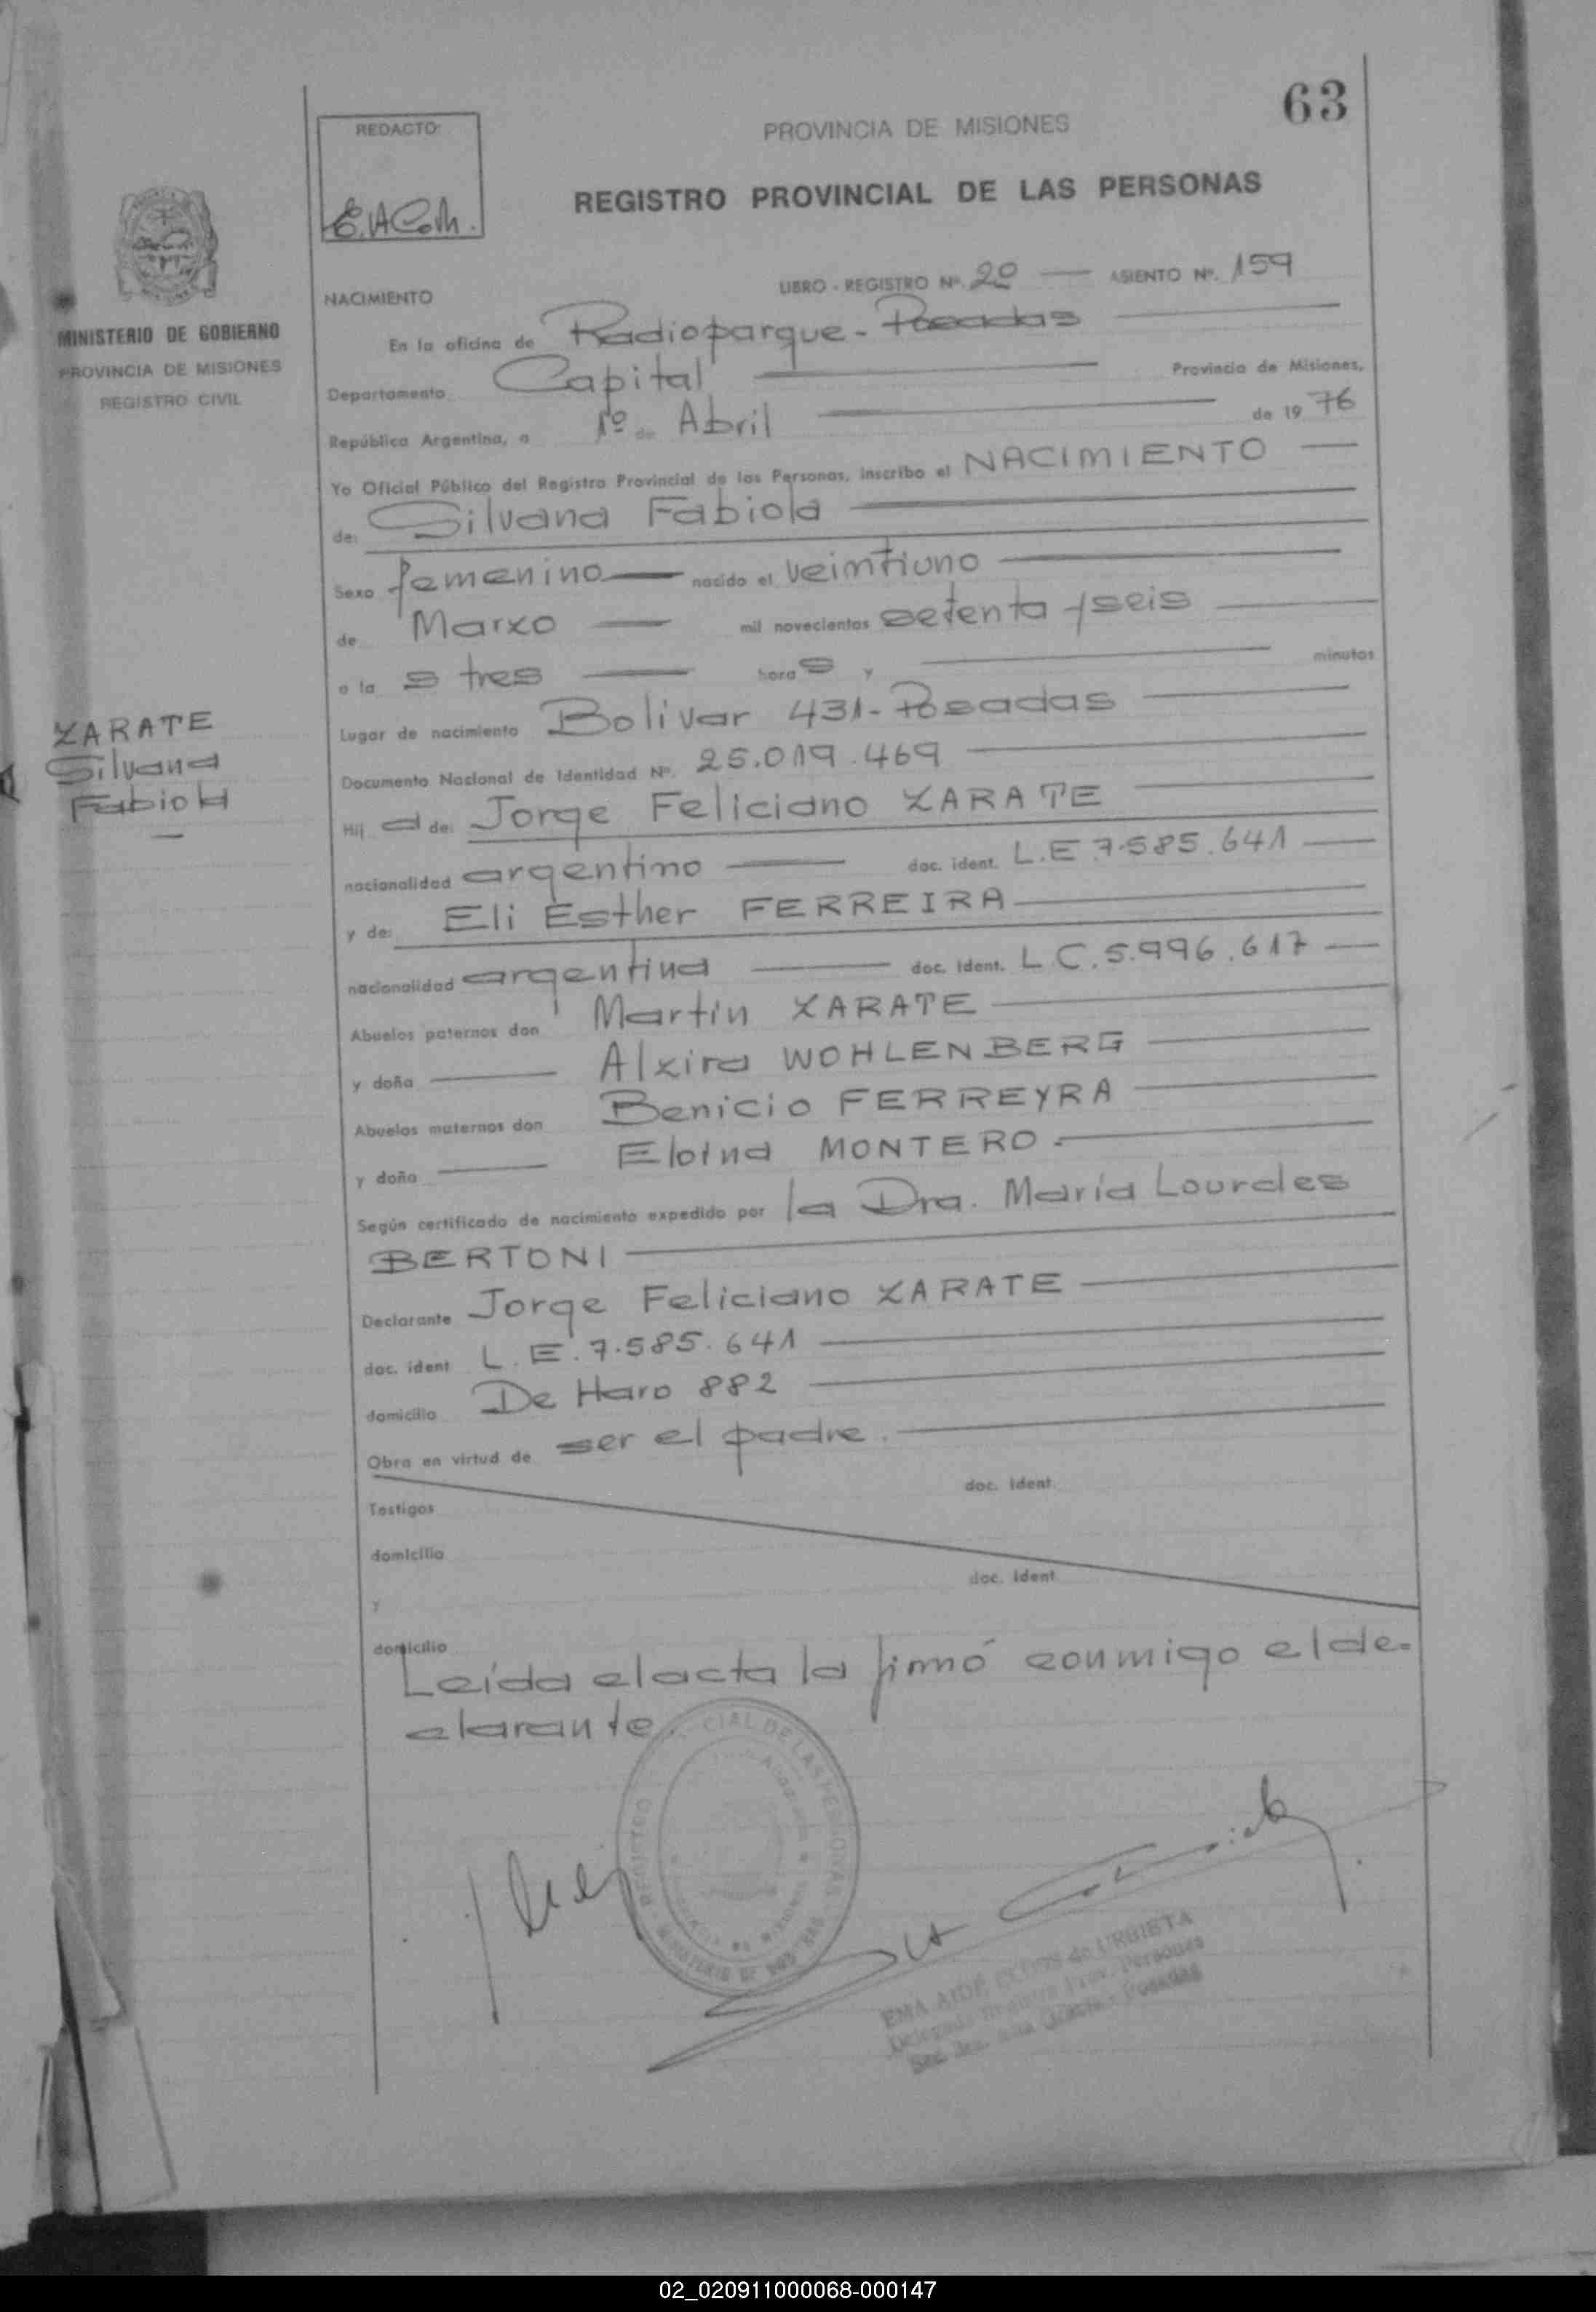 63
REDACTO
E.A.Coh.
PROVINCIA DE MISIONES
REGISTRO PROVINCIAL DE LAS PERSONAS
MINISTERIO DE GOBIERNO
PROVINCIA DE MISIONES
REGISTRO CIVIL
NACIMIENTO
LIBRO - REGISTRO Nº. 20 — ASIENTO Nº. 159
En la oficina de Radioparque - Posadas
Departamento Capital Provincia de Misiones,
República Argentina, a 1º de Abril de 19 76
Yo Oficial Público del Registro Provincial de las Personas, inscribo el NACIMIENTO
de: Silvana Fabiola
Sexo femenino nacido el veintiuno
de Marzo mil novecientos setenta y seis
a la s tres hora s y minutos
Lugar de nacimiento Bolivar 431 - Posadas
Documento Nacional de Identidad Nº. 25.019.469
Hij a de: Jorge Feliciano ZARATE
nacionalidad argentino doc. ident. L.E 7.585.641
y de: Eli Esther FERREIRA
nacionalidad argentina doc. ident. L.C. 5.996.617
Abuelos paternos don Martín ZARATE
y doña Alzira WOHLENBERG
Abuelos maternos don Benicio FERREYRA
y doña Eloina MONTERO.
Según certificado de nacimiento expedido por la Dra. María Lourdes
BERTONI
Declarante Jorge Feliciano ZARATE
doc. ident L.E. 7.585.641
domicilio De Haro 882
Obra en virtud de ser el padre.
doc. ident.
Testigos
domicilio
doc. ident
y
domicilio
Leída el acta la firmó conmigo el de-
clarante.
ZARATE
Silvana
Fabiola
CIAL DE LAS PERSONAS
REGISTRO
EMA AIDE de URBIETA
02_020911000068-000147